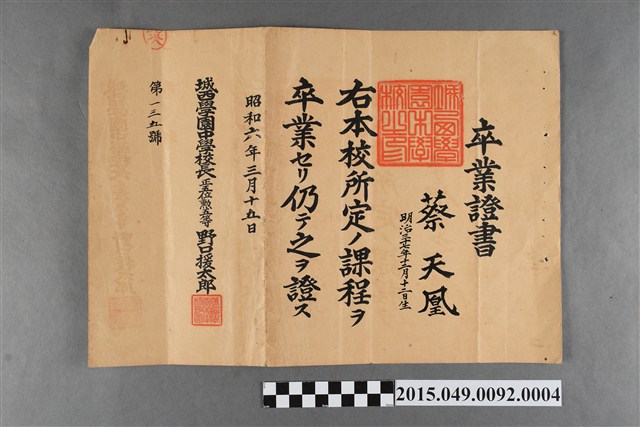 卒業證書
蔡天凰
明治三十七年十二月十二日生
右本校所定ノ課程ヲ
卒業セリ仍テ之ヲ證ス
昭和六年三月十五日
城西學園中學校長 正五位勲五等 野口援太郎
第一三五號
2015.049.0092.0004